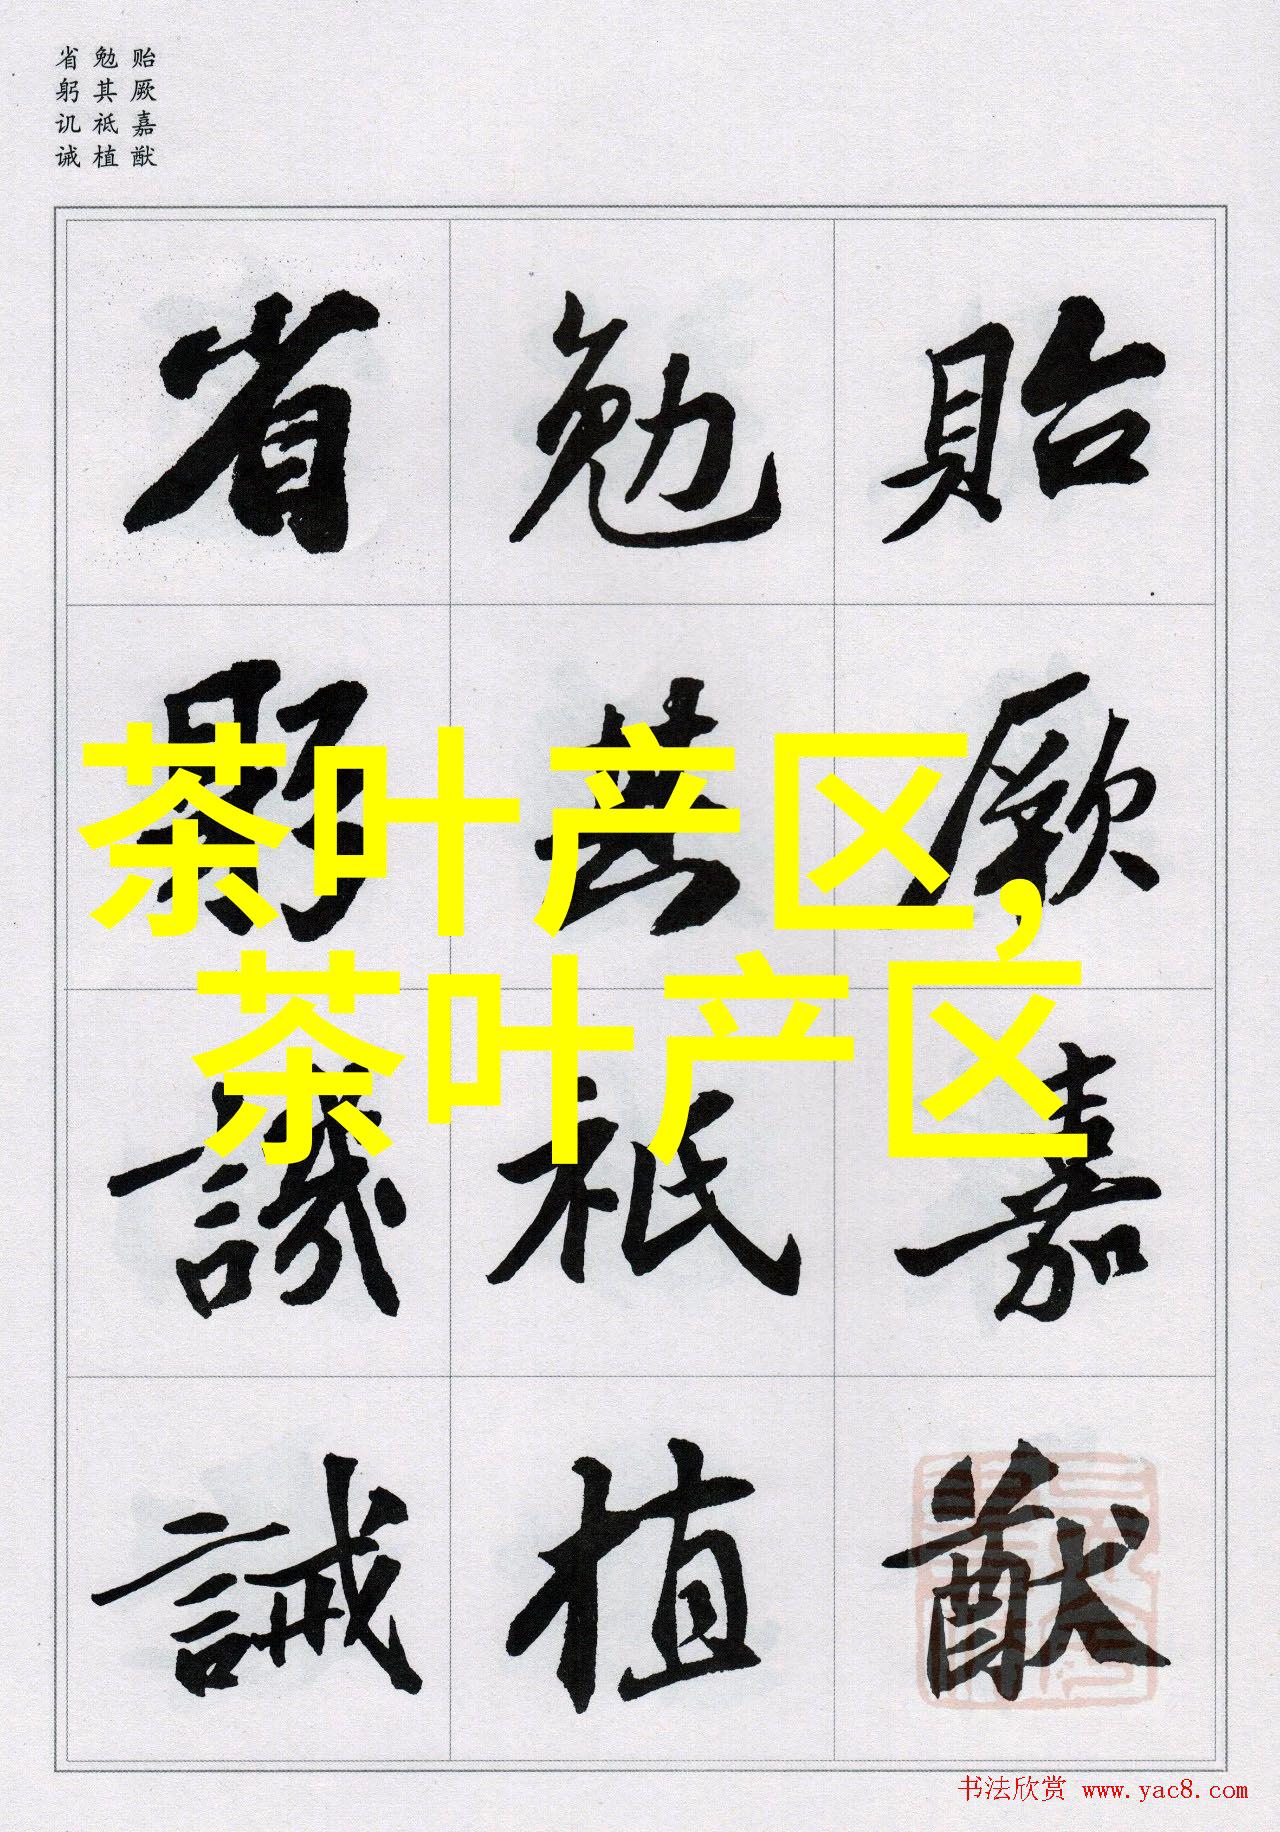 贻厥嘉猷
勉其祗植
省躬讥诫
貽厥嘉猷
勉其祗植
省躬譏誡
茶叶产区,
茶叶产区
书法欣赏 www.yac8.com